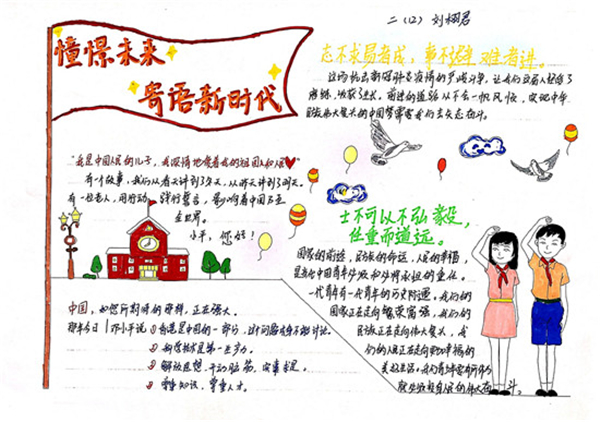 二（12） 刘栩君
憧憬未来
寄语新时代
志不求易者成，事不避难者进。
这场抗击新冠肺炎疫情的严峻斗争，让我们
了
磨练，收获了成长。前进的道路从不会一帆风顺，实现中华
民族伟大复兴的中国梦需要我们去矢志奋斗。
"我是中国人民的儿子，我深情地爱着我的祖国和人民
有一个故事，我们从春天讲到了冬天，从昨天讲到了明天。
有一位老人，用行动践行誓言，影响着中国乃至
全世界。
小平，您好！
士不可以不弘毅，
任重而道远。
国家的前途，民族的命运，人民的幸福，
是当代中国青年必须和必将承担的重任。
一代青年有一代青年的历史际遇。我们的
国家正在走向繁荣富强，我们的
民族正在走向伟大复兴，我
们的人民正在走向更加幸福的
美好生活。
中国，如您所期盼的那样，正在强大。
那年今日 邓小平说
①香港是中国的一部分，
问题
讨论。
②科学技术是第一生产力。
③解放思想，开动脑筋，实事求是。
④尊重知识，尊重人才。